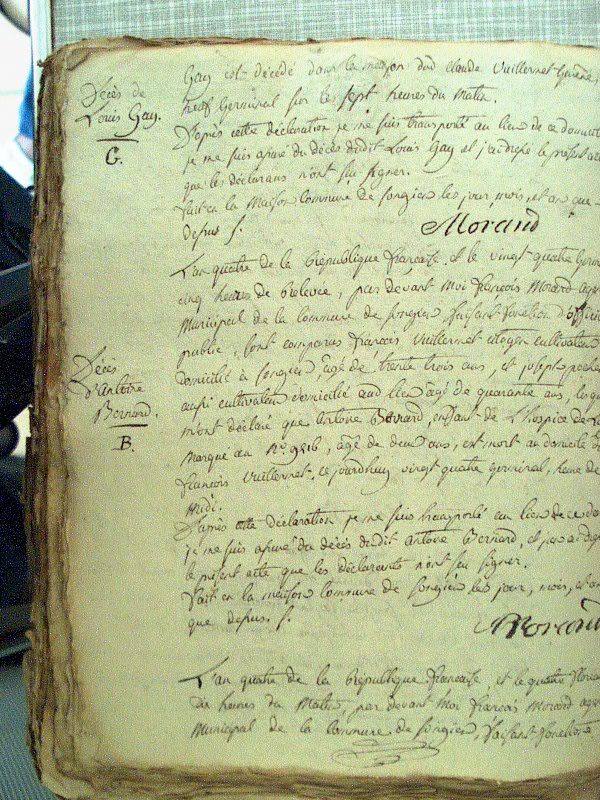 Décès de
Louis Gay.
G.
Gay est décédé dans la maison dud Claude Vuillermet
neuf Germinal sur les sept heures du Matin.
D'après cette déclaration je me suis transporté au lieu de ce domicile
je me suis assuré du décès dudit Louis Gay et j'ai drepé le présent acte
que les déclarans n'ont su signer.
fait en la Maison Commune de Songieu les jour mois, et an que
depus /.
Morand
L'an quatre de la République française, et le vingt quatre Germ
cinq heures de Relevée, par devant Moi françois Morand agent
Municipal de la Commune de Songieu, faisant fonction d'officier
public, sont comparus françois Vuillermet citoyen cultivateur
domicilié à Songieu, âgé de trente trois ans, et joseph
aussi cultivateur domicilié aud lieu âgé de quarante ans, lesquels
m'ont déclaré que Antoine Bernard, enfant de l'hospice de
Marqué au N° 9816, âgé de deux ans, est mort au domicile de
françois Vuillermet, ce jourdhuy vingt quatre germinal, heure de
Midi.
Décès
d'Antoine
Bernard.
B.
D'après cette déclaration je me suis transporté au lieu de ce do
je me suis assuré du décès dudit Antoine Bernard, et j'en ai
le présent acte que les déclarants n'ont su signer.
fait en la maison commune de Songieu les jour, mois, et an
que depus. /.
Morand
L'an quatre de la République française, et le quatre floreal
dix heures du Matin, par devant Moi françois Morand agent
Municipal de la Commune de Songieu, faisant fonctions